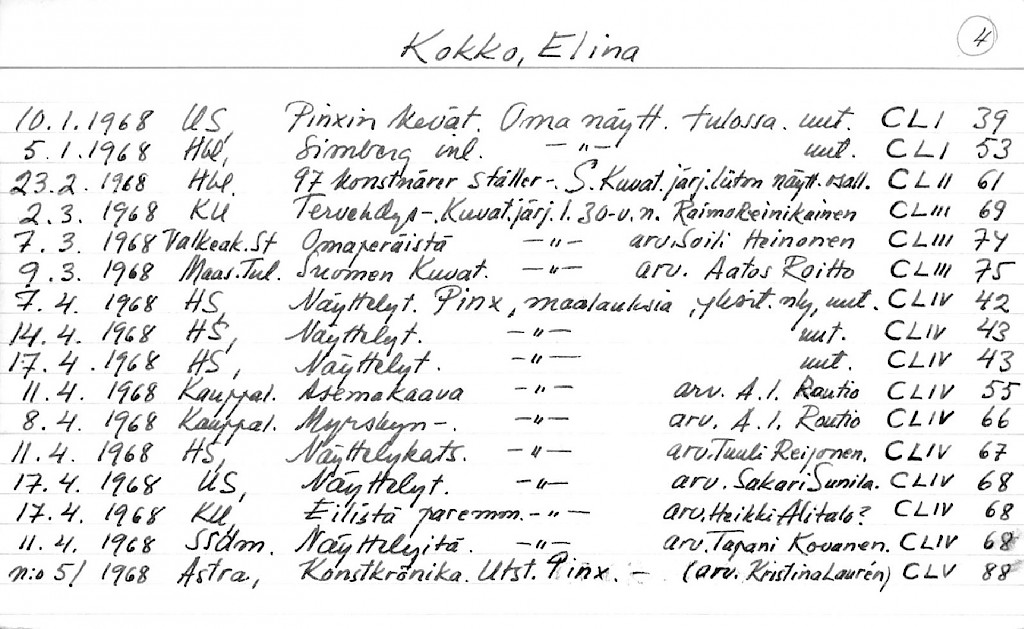 4
Kokko, Elina
10.1.1968 US, Pinxin kevät. Oma näytt. tulossa. uut. CLI 39
5.1.1968 Hbl, Simberg inl. -"- uut. CLI 53
23.2.1968 Hbl. 97 konstnärer ställer-. S. Kuvat.järj.liiton näytt. osall. CLII 61
2.3. 1968 KU Tervehdys-. Kuvat.järj. l. 30-v.n. Raimo Reinikainen CLIII 69
7.3. 1968 Valkeak. St Omaperäistä -"- arv. Soili Heinonen CLIII 74
9.3. 1968 Maas. Tul. Suomen Kuvat. -"- arv. Aatos Roitto CLIII 75
7.4. 1968 HS, Näyttelyt. Pinx, maalauksia, yksit. nly, uut. CLIV 42
14.4. 1968 HS, Näyttelyt. -"- uut. CLIV 43
17.4. 1968 HS, Näyttelyt. -"- uut. CLIV 43
11.4. 1968 Kauppal. Asemakaava -"- arv. A.I. Routio CLIV 55
8.4. 1968 Kauppal. Myrskyn-. -"- arv. A.I. Routio CLIV 66
11.4. 1968 HS, Näyttelykats. -"- arv. Tuuli Reijonen. CLIV 67
17.4. 1968 US, Näyttelyt. -"- arv. Sakari Sunila. CLIV 68
17.4. 1968 KU, Eilistä paremm.-"- arv. Heikki Alitalo? CLIV 68
11.4. 1968 SSdm. Näyttelyitä. -"- arv. Tapani Kovanen. CLIV 68
n:o 5/ 1968 Astra, Konstkrönika. Utst. Pinx. - (arv. Kristina Laurén) CLV 88